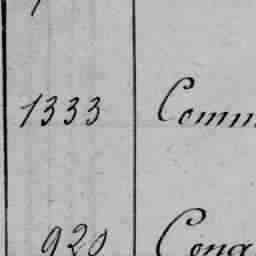 1333 Comm
920 Cong